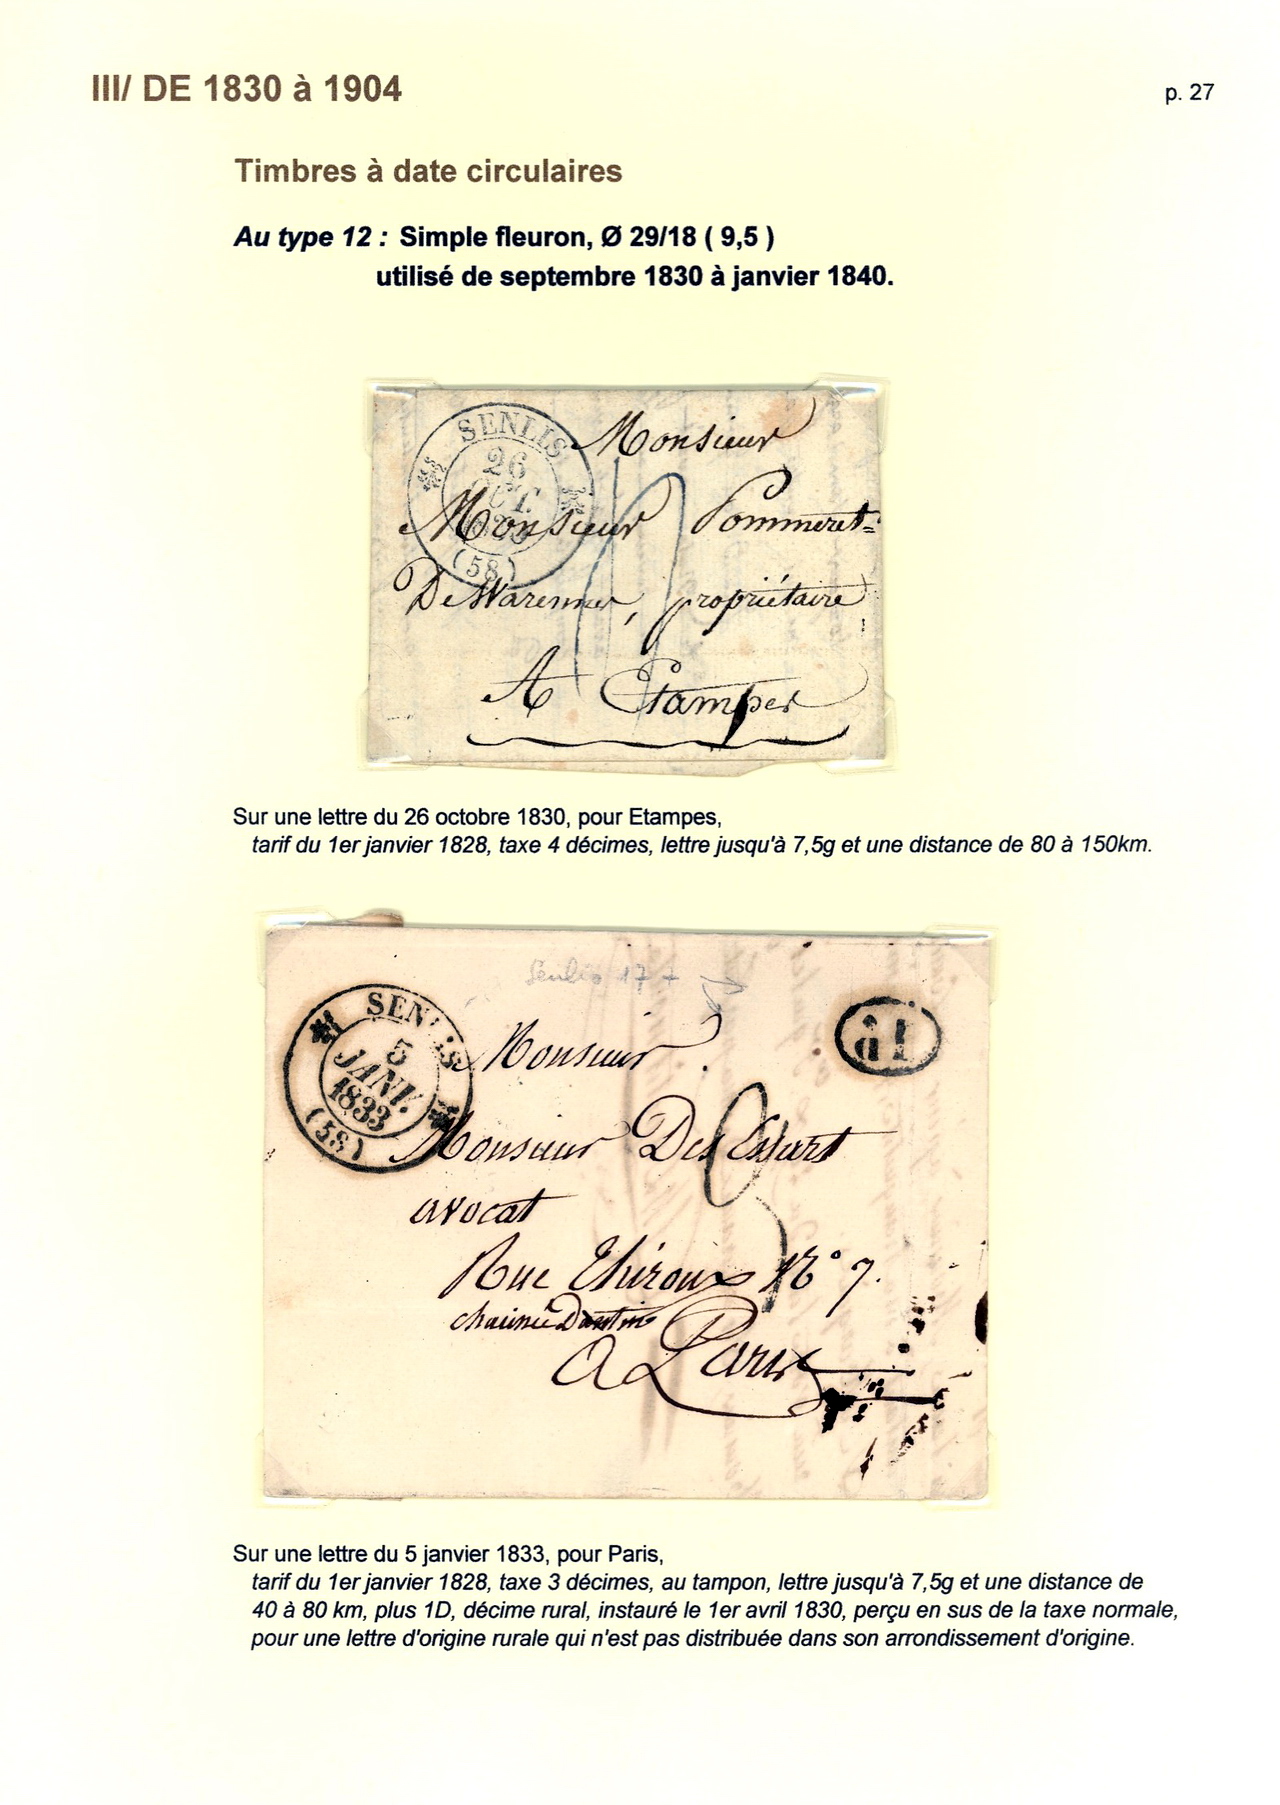 III/ DE 1830 à 1904
p. 27
Timbres à date circulaires
Au type 12 : Simple fleuron, Ø 29/18 ( 9,5 )
utilisé de septembre 1830 à janvier 1840.
SENLIS
26
OCT.
1830
(58)
Monsieur
Monsieur Pommeret=
De Varennes, propriétaire
A Etampes
Sur une lettre du 26 octobre 1830, pour Etampes,
tarif du 1er janvier 1828, taxe 4 décimes, lettre jusqu'à 7,5g et une distance de 80 à 150km.
Senlis 17
SENLIS
5
JANV.
1833
(58)
1D
Monsieur
Monsieur Des Essart
avocat
Rue Thiroux N° 7.
chaussé Dantin
a Paris
Sur une lettre du 5 janvier 1833, pour Paris,
tarif du 1er janvier 1828, taxe 3 décimes, au tampon, lettre jusqu'à 7,5g et une distance de
40 à 80 km, plus 1D, décime rural, instauré le 1er avril 1830, perçu en sus de la taxe normale,
pour une lettre d'origine rurale qui n'est pas distribuée dans son arrondissement d'origine.